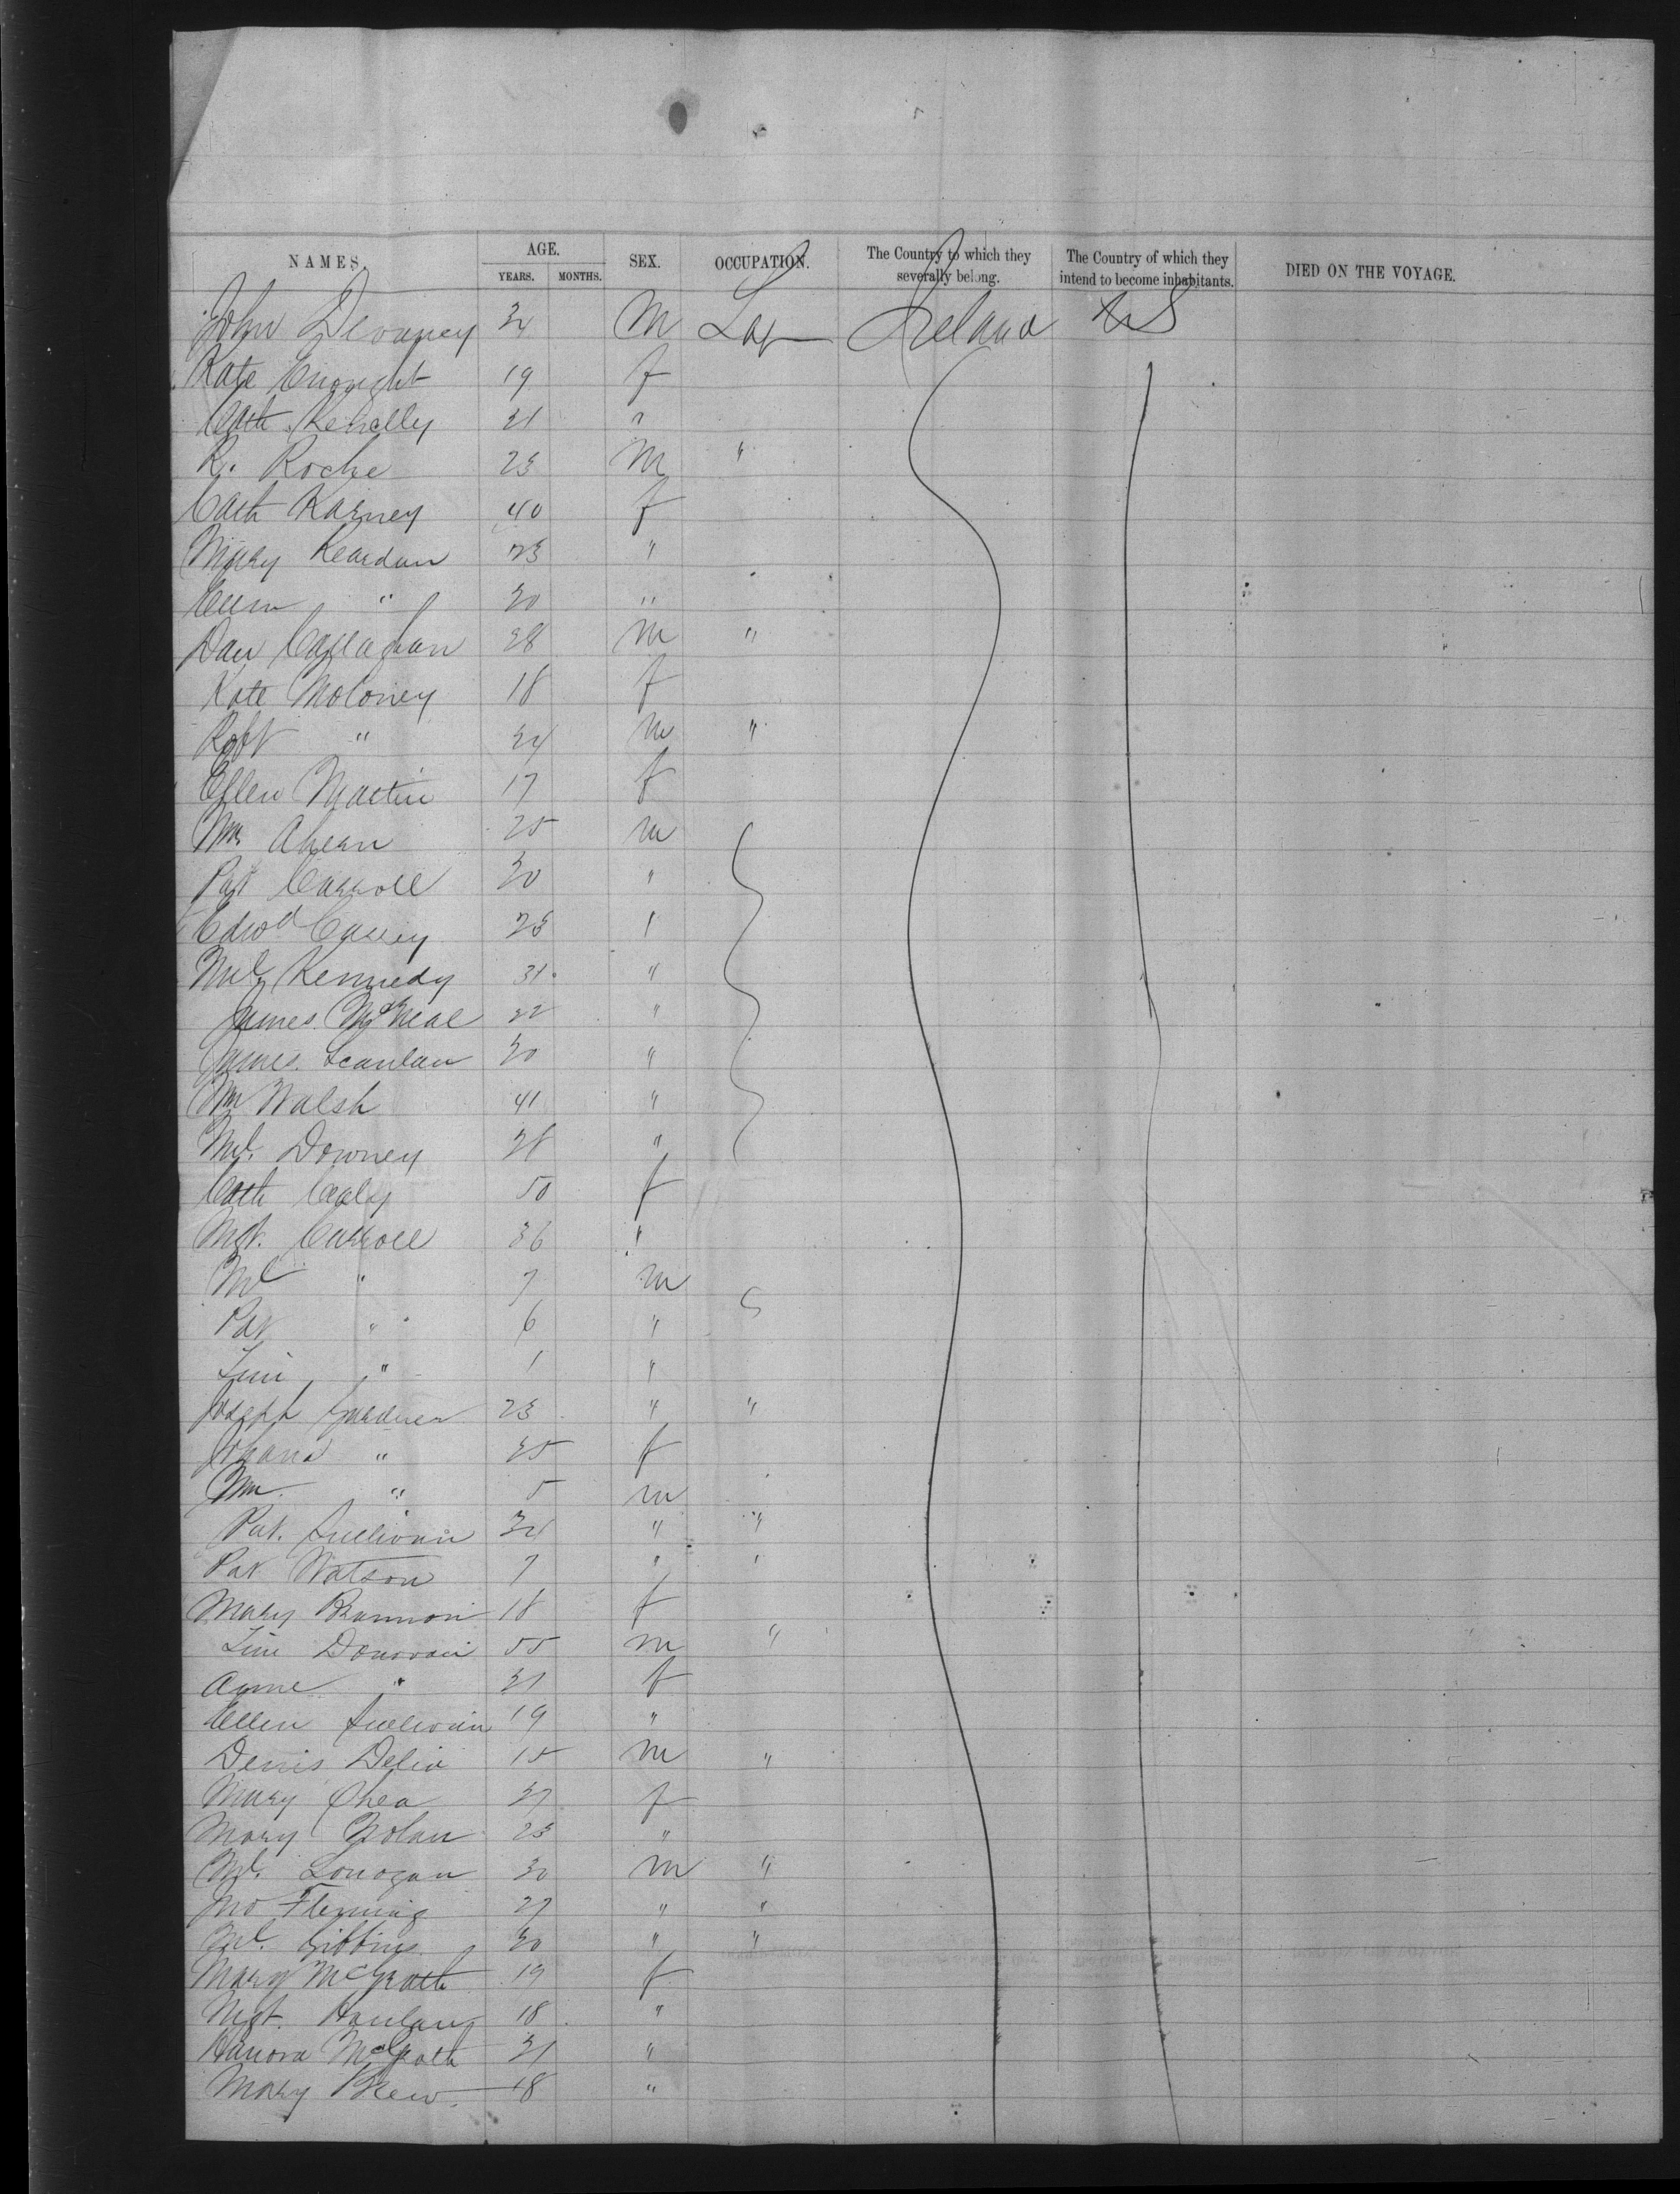 NAMES. AGE. SEX. OCCUPATION. The Country to which they severally belong. The Country of which they intend to become inhabitants. DIED ON THE VOYAGE.
YEARS. MONTHS.
John Devaney 24 M Lab Ireland US
Kate Enright 19 f
Cath. Kenelly 21 "
R. Roche 23 M "
Cath Karney 40 f
Mary Reardon 23 "
Ellen " 20 "
Dan Callaghan 28 m "
Kate Moloney 18 f
Robt " 24 m "
Ellen Martin 17 f
Wm Ahern 25 m
Pat Carroll 30 "
Edwd Casey 23 "
Ml Kennedy 31 "
James McNeal 22 "
James Scanlan 30 "
Wm Walsh 41 "
Ml. Downey 28 "
Cath Caly 50 f
Mgt. Carroll 36 "
Ml " 7 m
Pat " 6 "
Tim " 1 "
Joseph Gardner 23 " "
Johana " 25 f
Wm. " 5 m
Pat. Sullivan 24 " "
Pat Watson 7 " "
Mary Bannon 18 f
Tim Donovan 55 m "
Anne " 21 f
Ellen Sullivan 19 "
Denis Delia 15 m "
Mary Shea 27 f
Mary Nolan 23 "
Ml. Lonogan 30 m "
Jno Fleming 27 " "
Ml. Gibbins 30 " "
Mary McGrath 19 f
Mgt. Hanlan 18 "
Hanora McGrath 21 "
Mary Brew 18 "